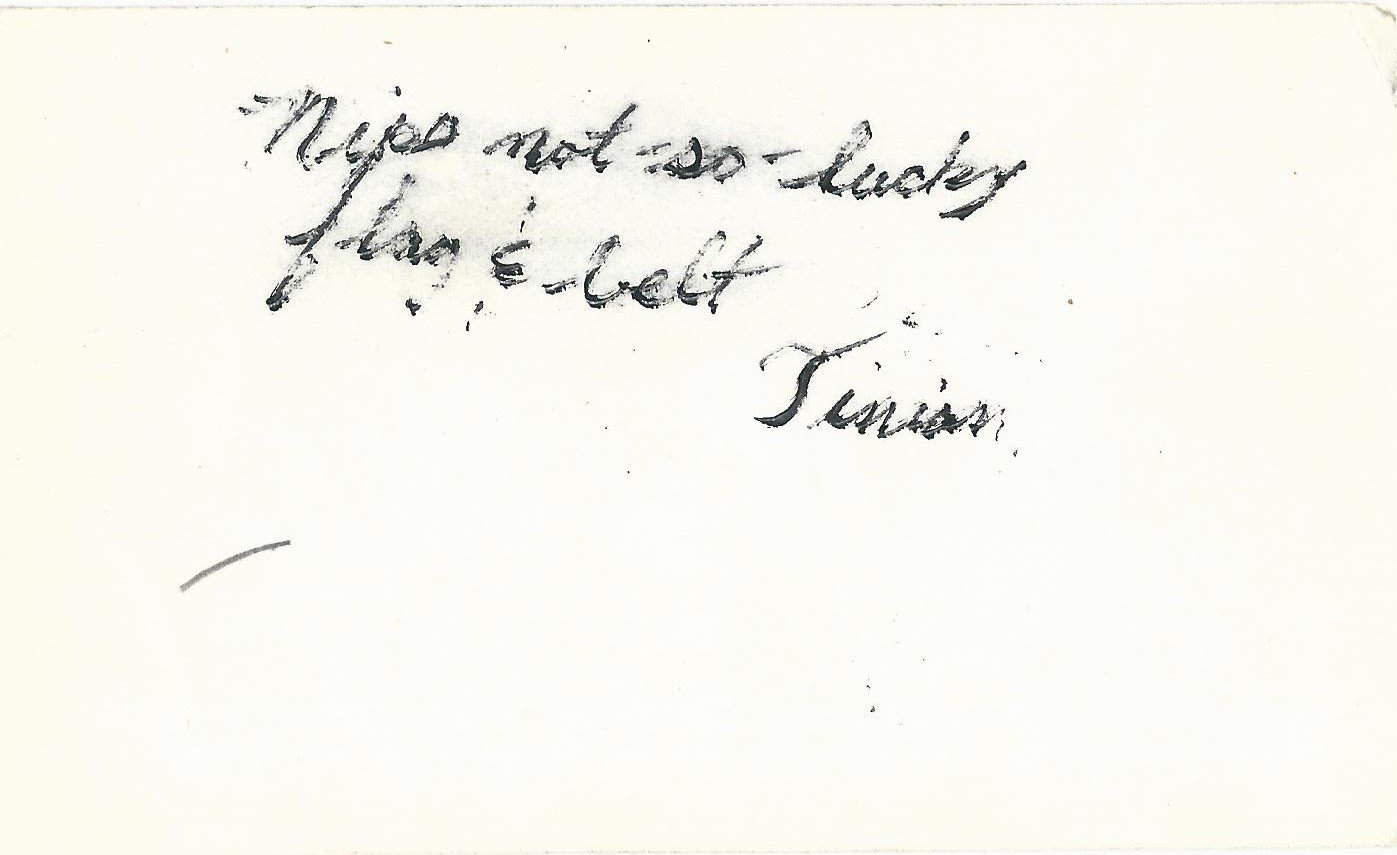 Nips not-so-lucky
flag & belt
Tinian